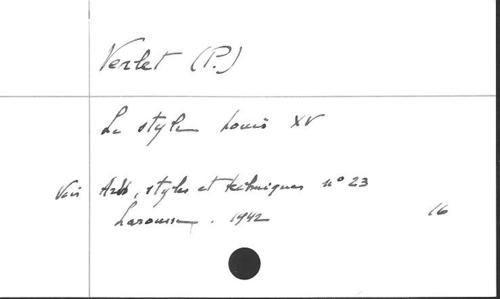 Verlet (P.)
Le style Louis XV
Voir Arts, styles et techniques n° 23
Larousse. 1942 16